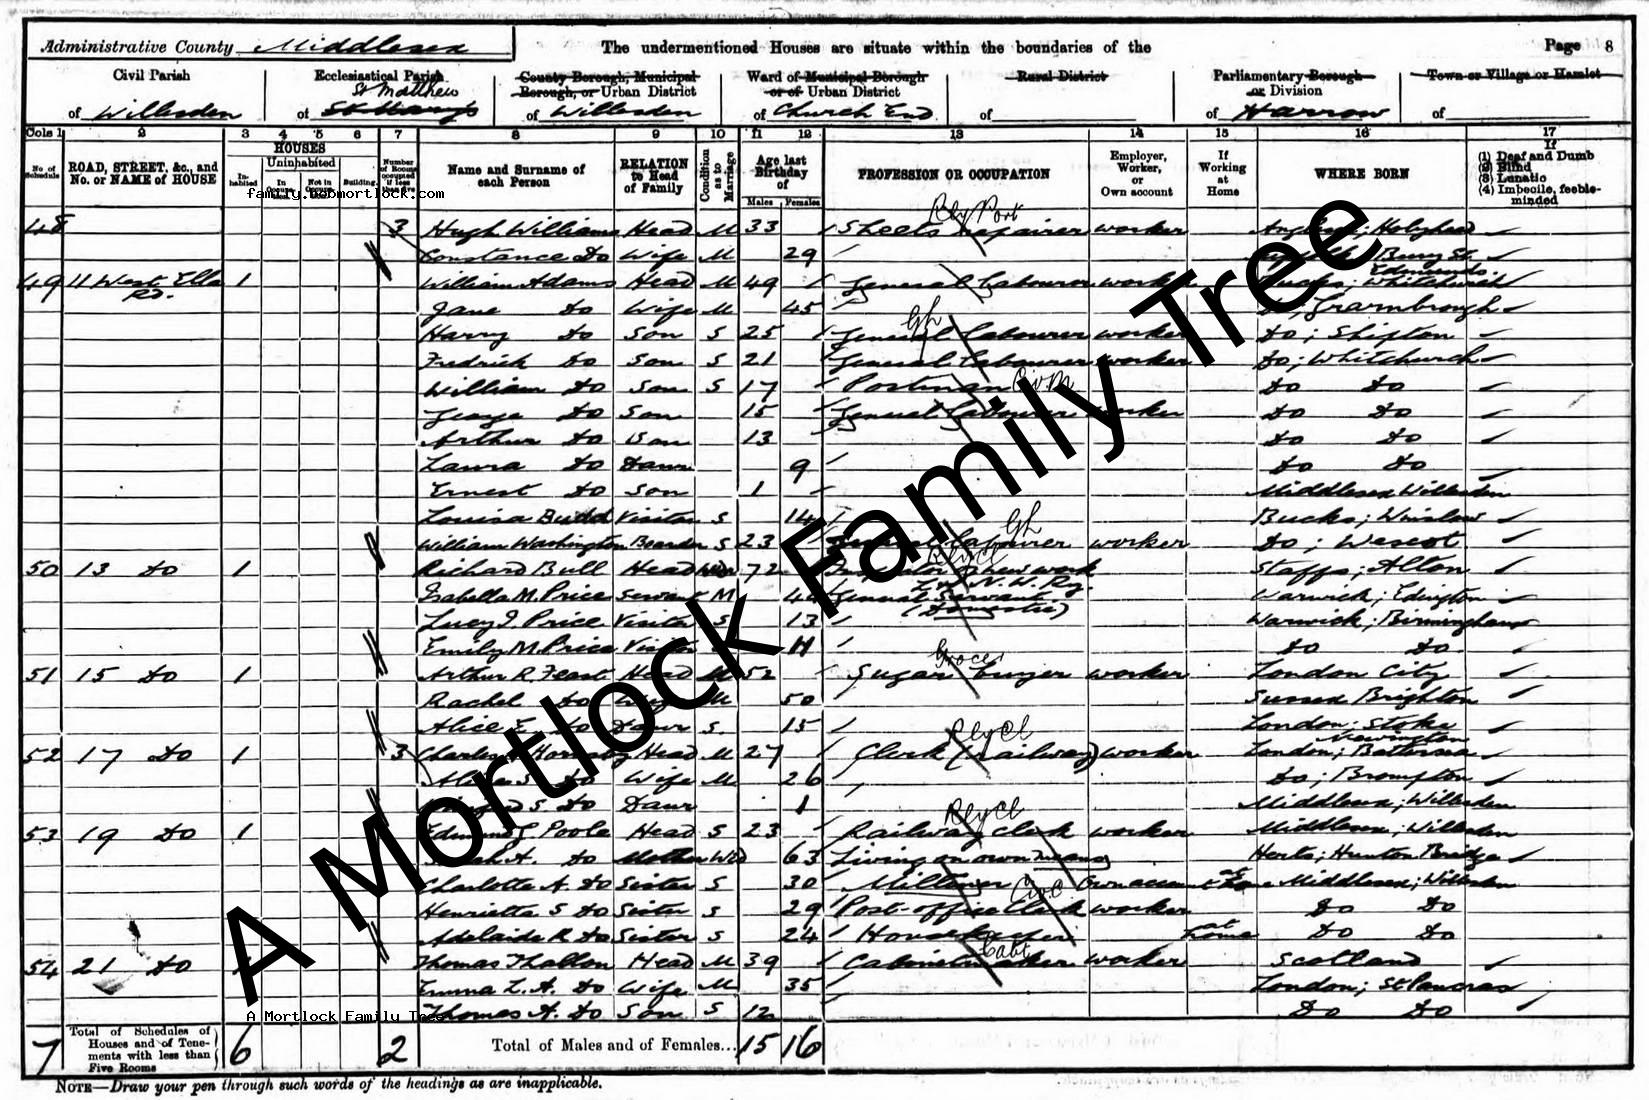 Administrative County Middlesex The undermentioned Houses are situate within the boundaries of the Page 8
Civil Parish of Willesden
Ecclesiastical Parish of St Matthew St Mary's
County Borough, Municipal Borough, or Urban District of Willesden
Ward of Municipal Borough or of Urban District of Church End
Rural District of
Parliamentary Borough or Division of Harrow
Town or Village or Hamlet of
Cols 1 2 3 4 5 6 7 8 9 10 11 12 13 14 15 16 17
No. of Schedule
ROAD, STREET, &c., and No. or NAME of HOUSE
HOUSES
Inhabited
Uninhabited
In Occupation
Not in Occupation
Building
Number of Rooms occupied if less than five
Name and Surname of each Person
RELATION to Head of Family
Condition as to Marriage
Age last Birthday of
Males Females
PROFESSION OR OCCUPATION
Employer, Worker, or Own account
If Working at Home
WHERE BORN
If
(1) Deaf and Dumb
(2) Blind
(3) Lunatic
(4) Imbecile, feeble-minded
family.robmortlock.com
48 3 Hugh Williams Head M 33 Rly Port Sheets repairer worker Anglesea; Holyhead
Constance Do Wife M 29 Bury St. Edmunds
49 11 West Ella Rd. 1 William Adams Head M 49 General Labourer worker Bucks; Whitchurch
Jane Do Wife M 45 Granborough
Harry Do Son S 25 Gh General Labourer worker Do; Shipton
Fredrick Do Son S 21 General Labourer worker Do; Whitchurch
William Do Son S 17 Postman Do Do
George Do Son 15 General Labourer worker Do Do
Arthur Do Son 13 Do Do
Laura Do Daur 9 Do Do
Ernest Do Son 1 Middlesex Willesden
Louisa Budd Visitor S 14 Bucks; Winslow
William Washington Boarder S 23 Gh General Labourer worker Do; Wescot
50 13 Do 1 Richard Bull Head Widr 72 Inspector of new work L & N. W. Ry. Staffs; Alton
Isabella M. Price Servant M General Servant (Domestic) Warwick; Edington
Lucy J. Price Visitor S 13 Warwick; Birmingham
Emily M. Price Visitor 11 Do Do
51 15 Do 1 Arthur R. Feast Head M 52 Grocer Sugar buyer worker London City
Rachel Do Wife M 50 Sussex Brighton
Alice E. Do Daur S. 15 London; Stoke Newington
52 17 Do 1 3 Charles Hornsby Head M 27 Rly Cl Clerk (railway) worker London; Battersea
S. Do Wife M 26 Do; Brompton
S Do Daur 1 Middlesex; Willesden
53 19 Do 1 Edmund G Poole Head S 23 Rly Cl Railway clerk worker Middlesex; Willesden
Sarah A. Do Mother Wid 63 Living on own means Herts; Hunton Bridge
Charlotte A. Do Sister S 30 Milliner Own account at home Middlesex; Willesden
Henrietta S Do Sister S 29 Post-office Clerk worker Do Do
Adelaide R Do Sister S 24 Housekeeper at home Do Do
54 21 Do 1 Thomas Thallon Head M 39 Cabt Cabinetmaker worker Scotland
Emma L. A. Do Wife M 35 London; St Pancras
Thomas A. Do Son S 12 Do Do
A Mortlock Family Tree
A Mortlock Family Tree
7 Total of Schedules of Houses and of Tenements with less than Five Rooms 6 2 Total of Males and of Females... 15 16
NOTE—Draw your pen through such words of the headings as are inapplicable.